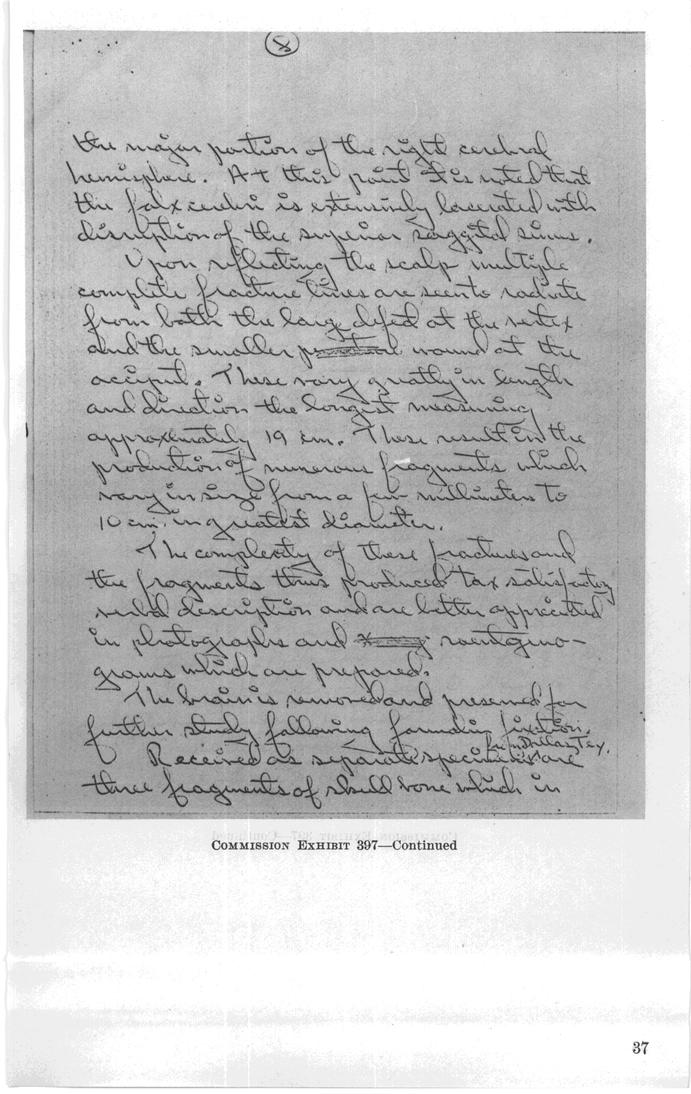 8
the major portion of the right cerebral
hemisphere. At this point it is noted that
the falx cerebri is extensively lacerated with
disruption of the superior saggital sinus.
Upon reflecting the scalp multiple
complete fracture lines are seen to radiate
from both the large defect at the vertex
and the smaller wound at the
occiput. These vary greatly in length
and direction the longest measuring
approximately 19 cm. These result in the
production of numerous fragments which
vary in size from a few millimeters to
10 cm. in greatest diameter.
The complexity of these fractures and
the fragments thus produced tax satisfactory
verbal description and are better appreciated
in photographs and roentgeno-
grams which are prepared.
The brain is removed and preserved for
further study following formalin fixation.
from Dallas, Tex.
Received as separate specimens are
three fragments of skull bone which in
COMMISSION EXHIBIT 397—Continued
37